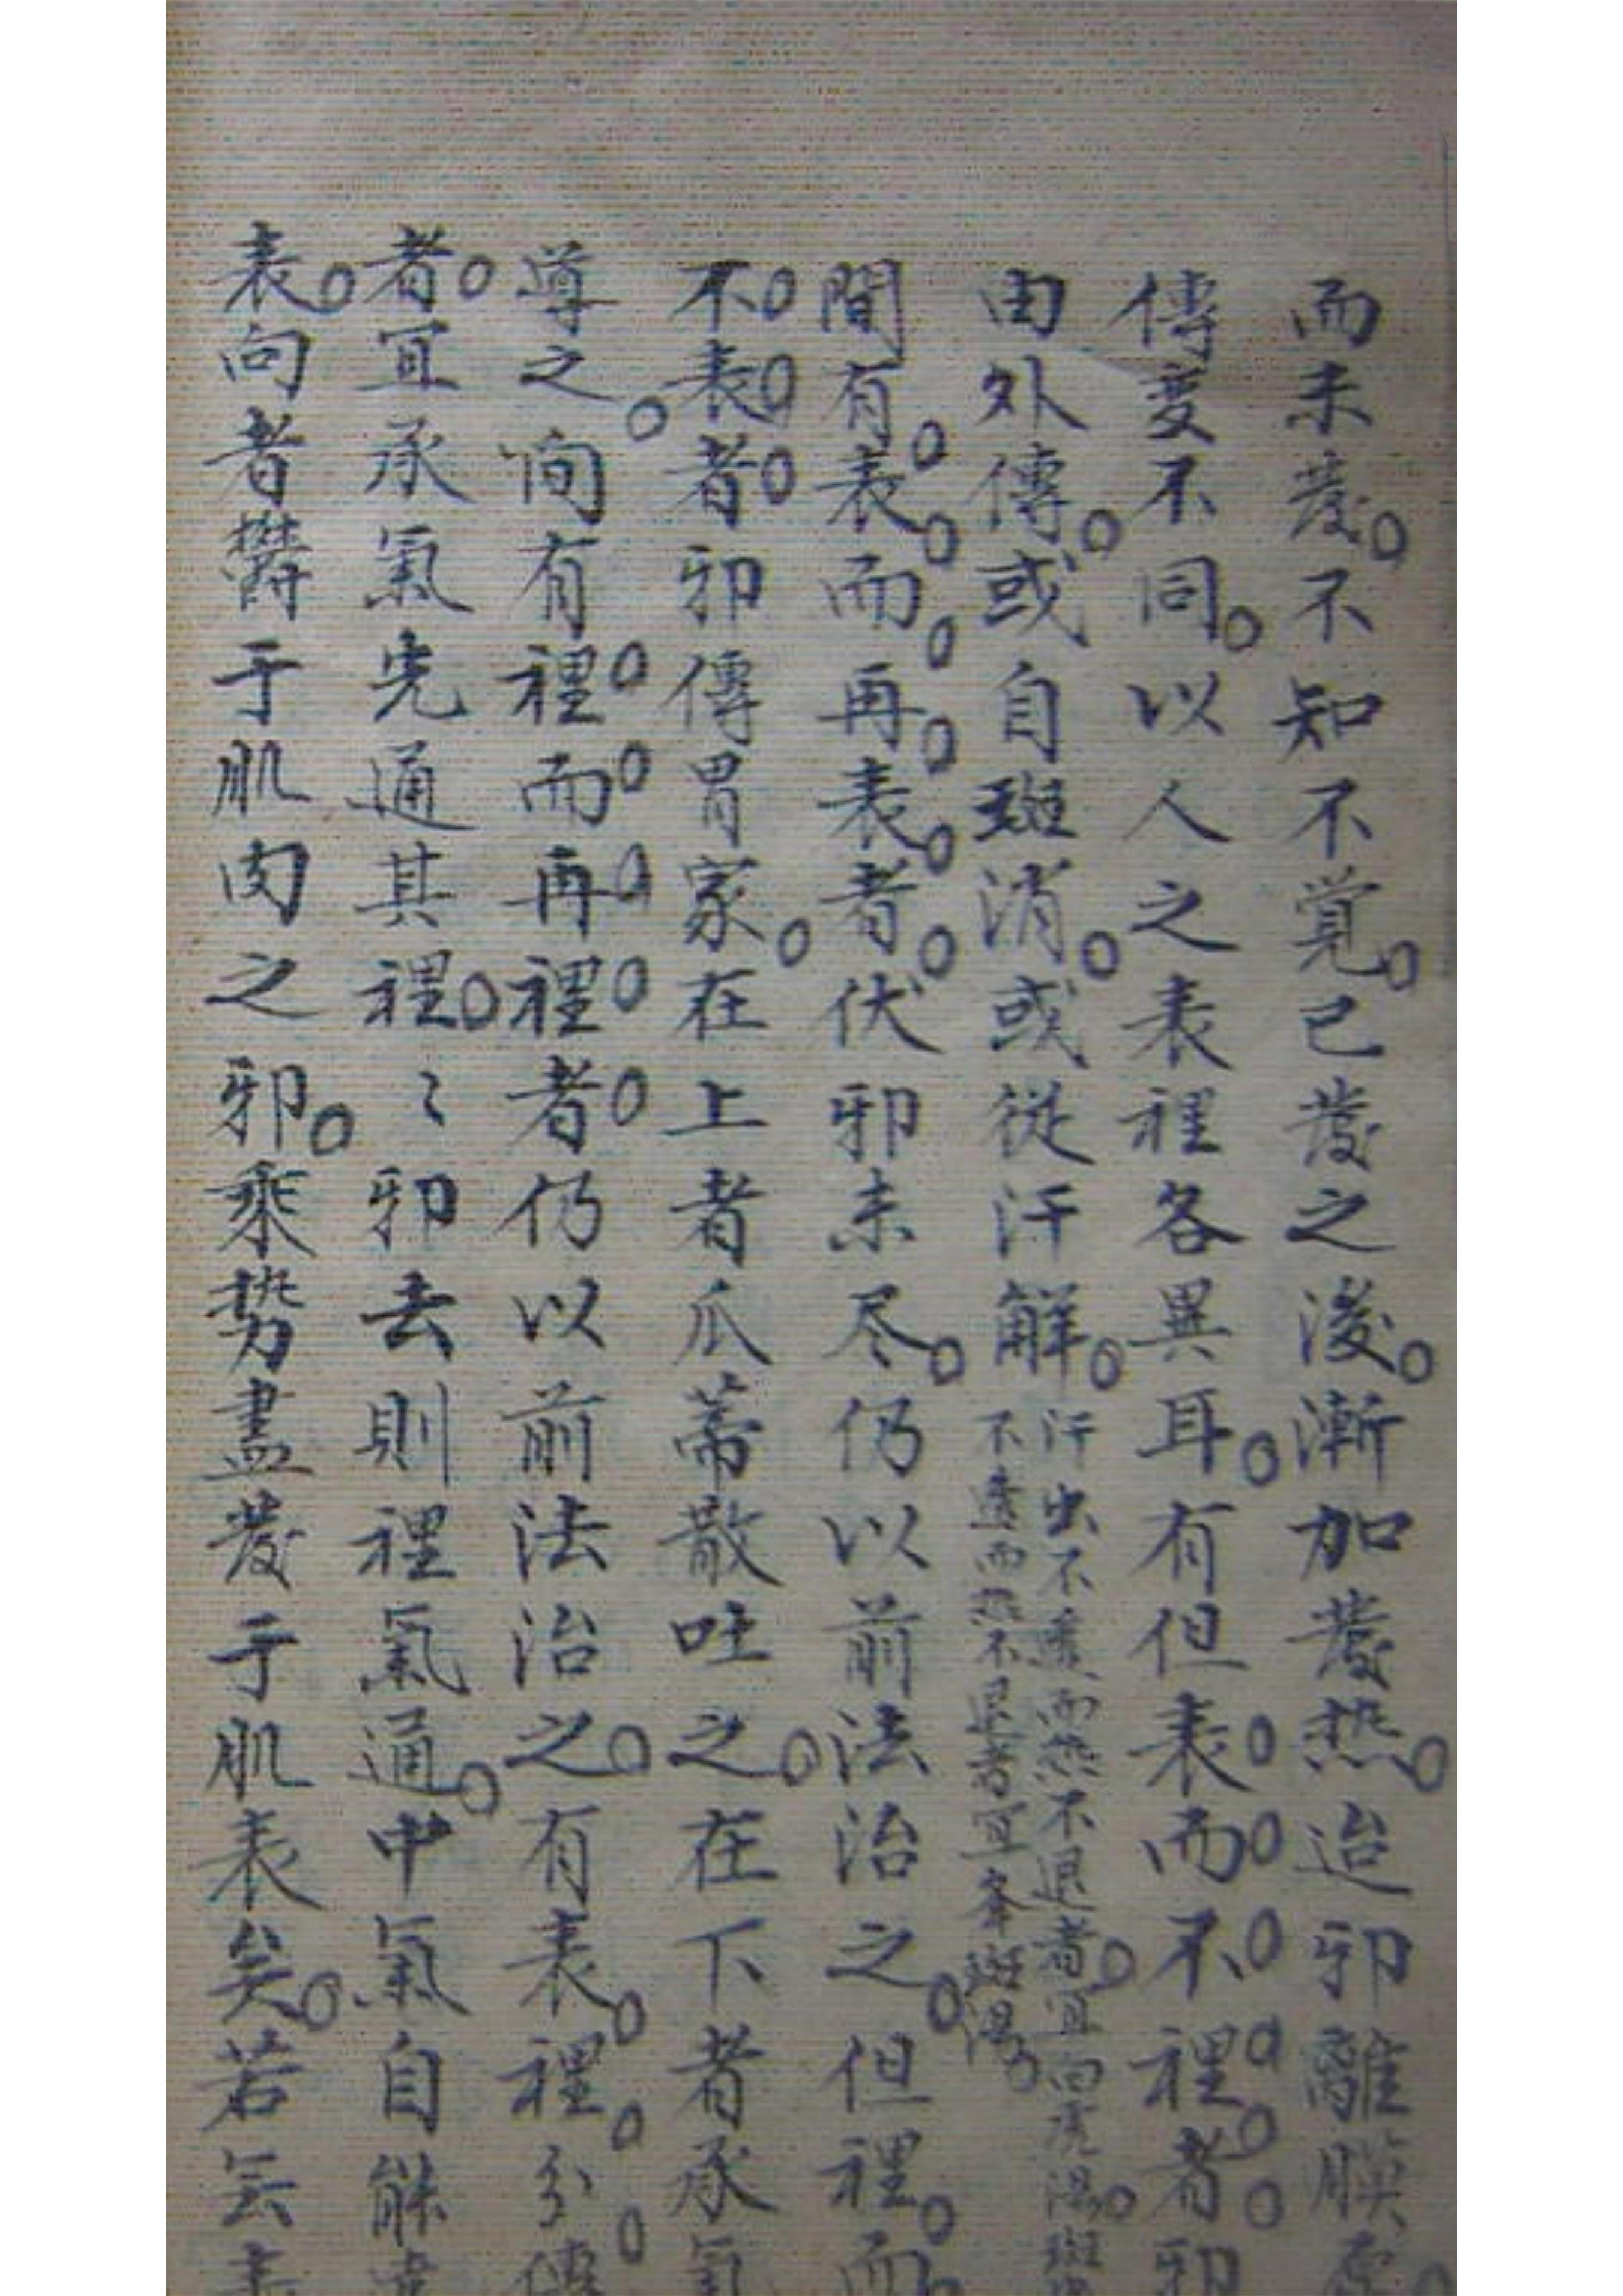 而未發。不知不覺。已發之後。漸加發热。迨邪離膜原
傳变不同。以人之表裡各異耳。有但表而不裡者邪
由外傳。或自斑消。或從汗解。
汗出不透、而热不退者。宜白虎湯。斑
不透而热不退者宜举斑湯。
間有表而再表者伏邪未尽。仍以前法治之。但裡而
不表者邪傳胃家。在上者瓜蒂散吐之。在下者承氣
導之。间有裡而再裡者仍以前法治之。有表裡分傳
者。宜承氣先通其裡。〻邪去則裡氣通。中氣自能達
表。向者鬱于肌肉之邪。乘势盡發于肌表矣。若芸表